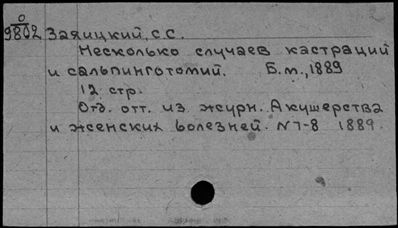 0
9802 Заяицкий, С С.
Несколько случаев кастраций
и сальпинготомий. Б.м., 1889
12 стр.
Отд. отт. из журн. Акушерства
и женских болезней. N 7-8 1889.